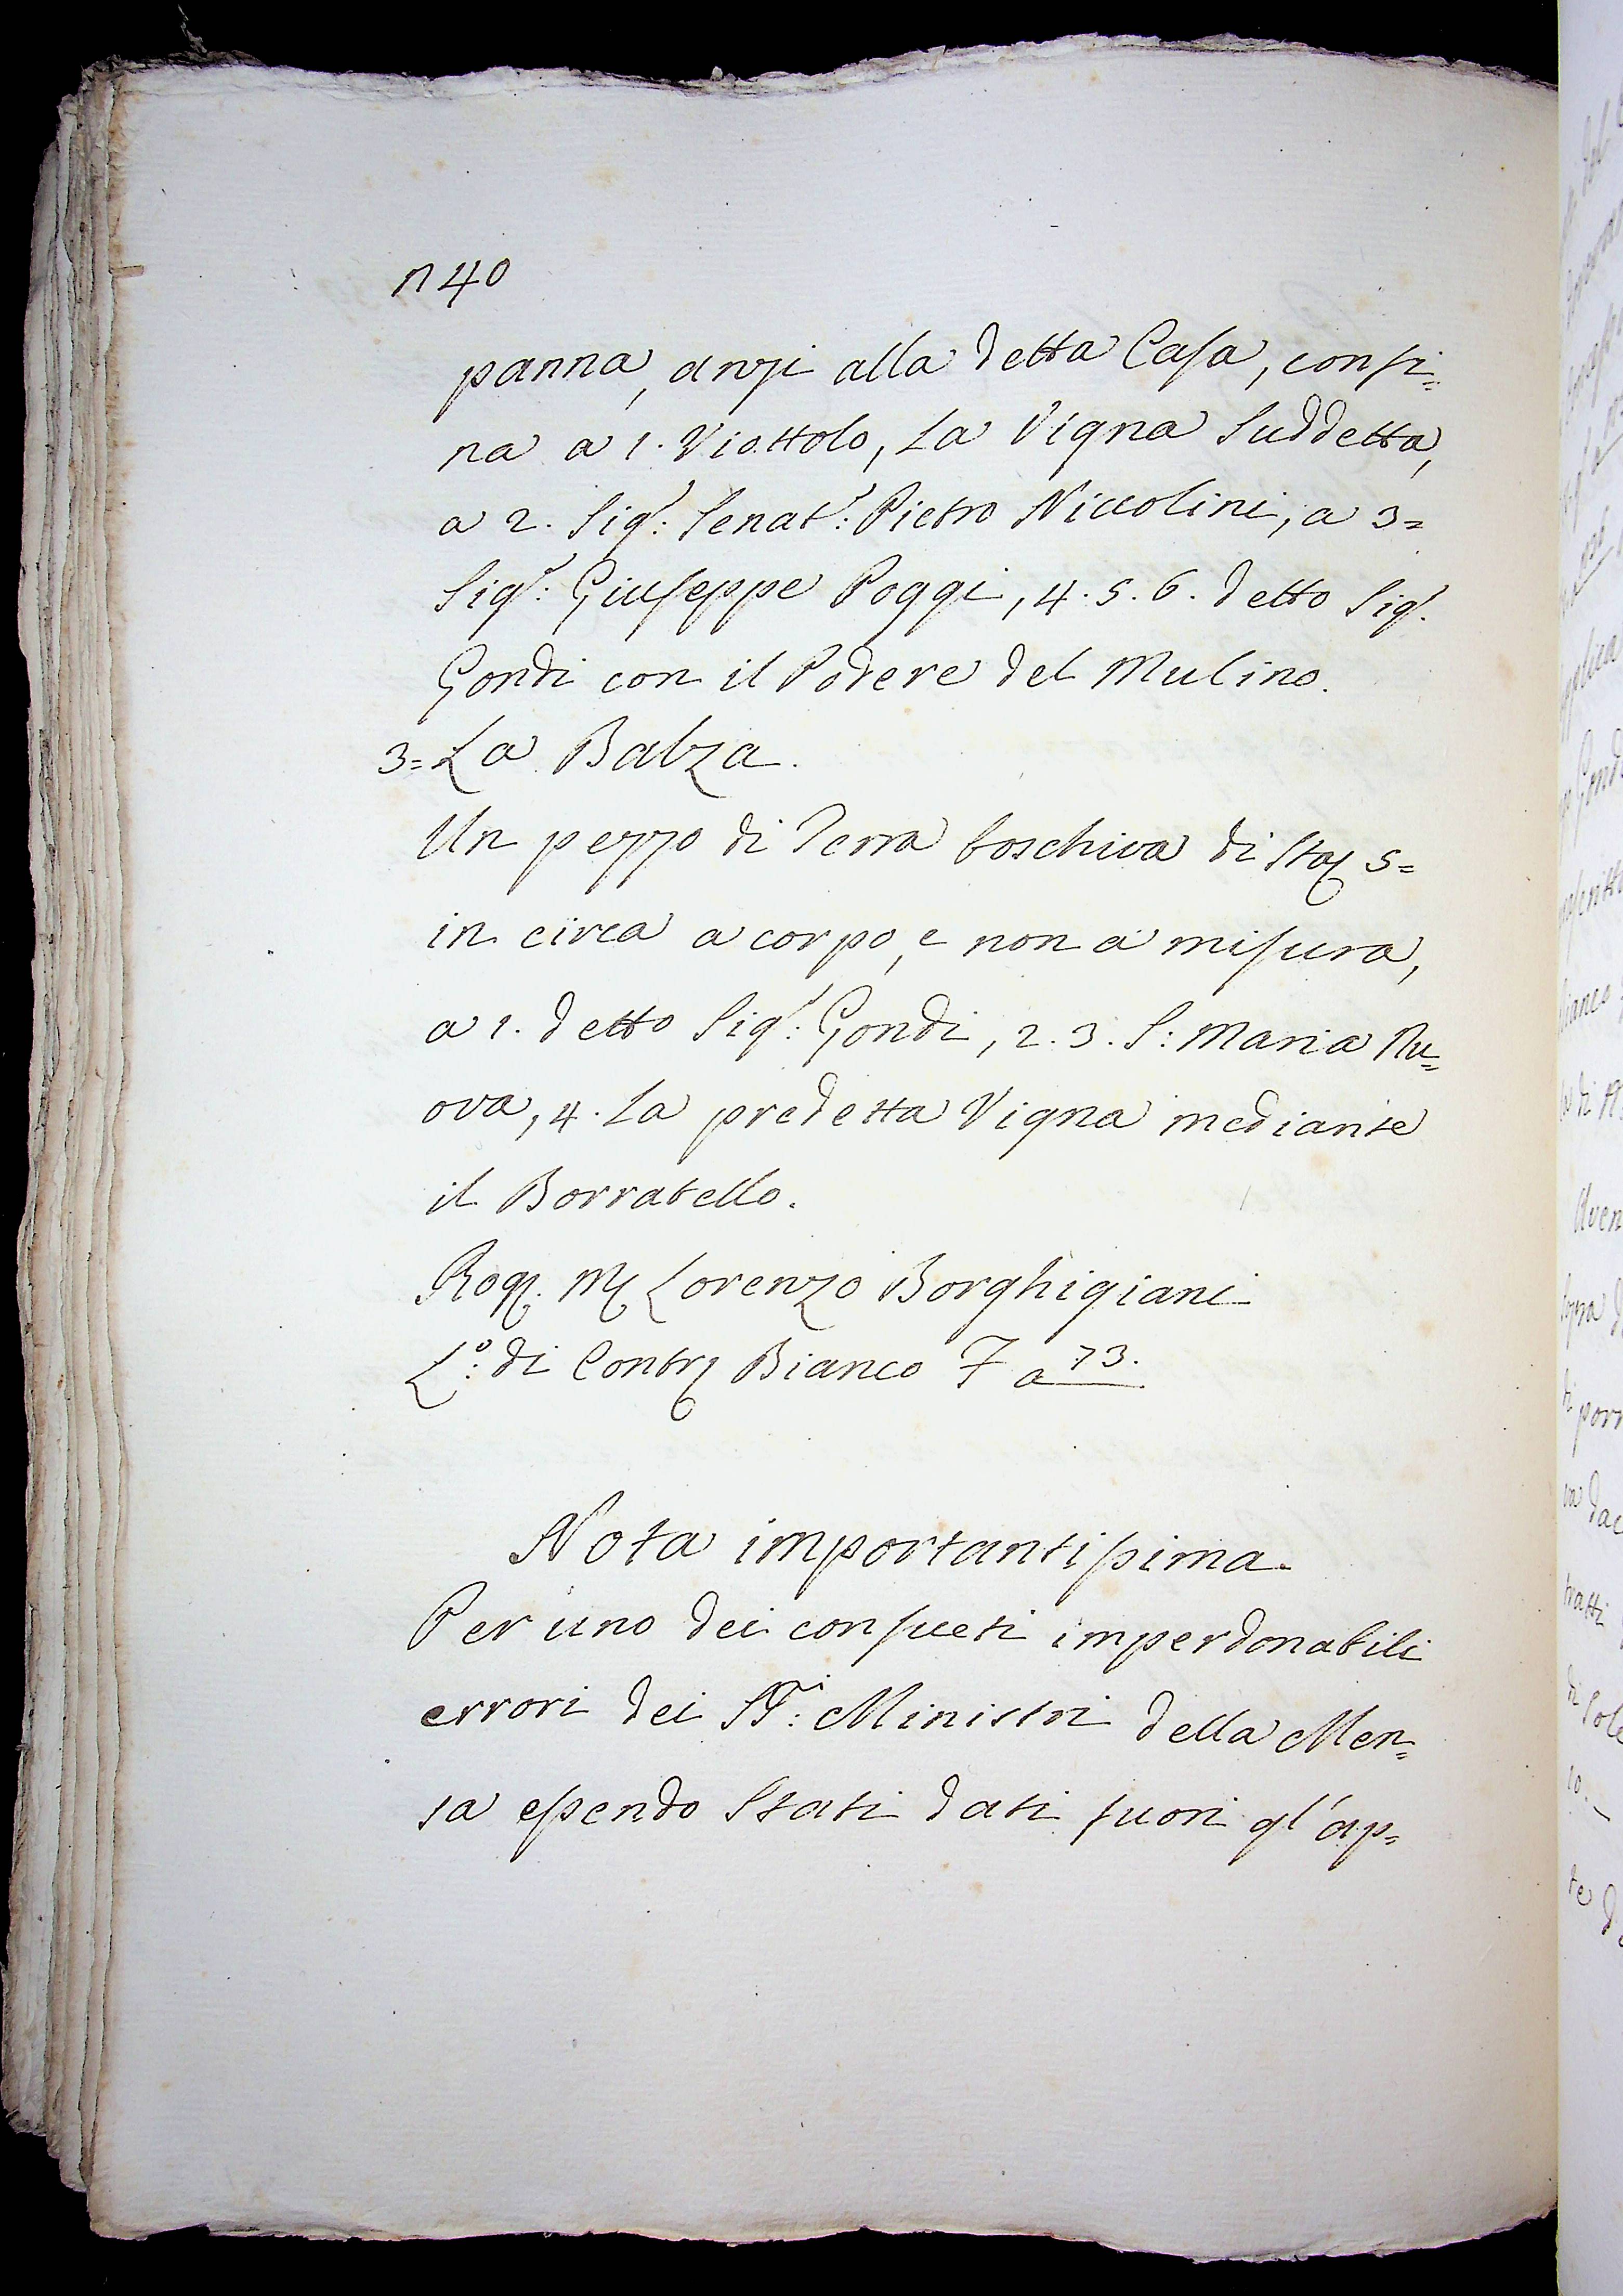 n 40
panna, anzi alla detta Casa, confi=
na a 1. Viottolo, La Vigna Suddetta,
a 2. Sig.r: Senat.r: Pietro Niccolini, a 3=
Sig.r: Giuseppe Poggi, 4. 5. 6. detto Sig.r
Gondi con il Podere del Mulino.
3= La Balza.
Un pezzo di Terra boschiva di Sta 5=
in circa a corpo, e non a misura,
a 1. detto Sig.r: Gondi, 2. 3. S: Maria Nu=
ova, 4. La predetta Vigna mediante
il Borratello.
Rog. M Lorenzo Borghigiani
L.o: di Contr Bianco 7 a 73.
Nota importantissima.
Per uno dei consueti imperdonabili
errori dei SS.ri: Ministri della Men=
sa essendo Stati dati fuori gl'ap=